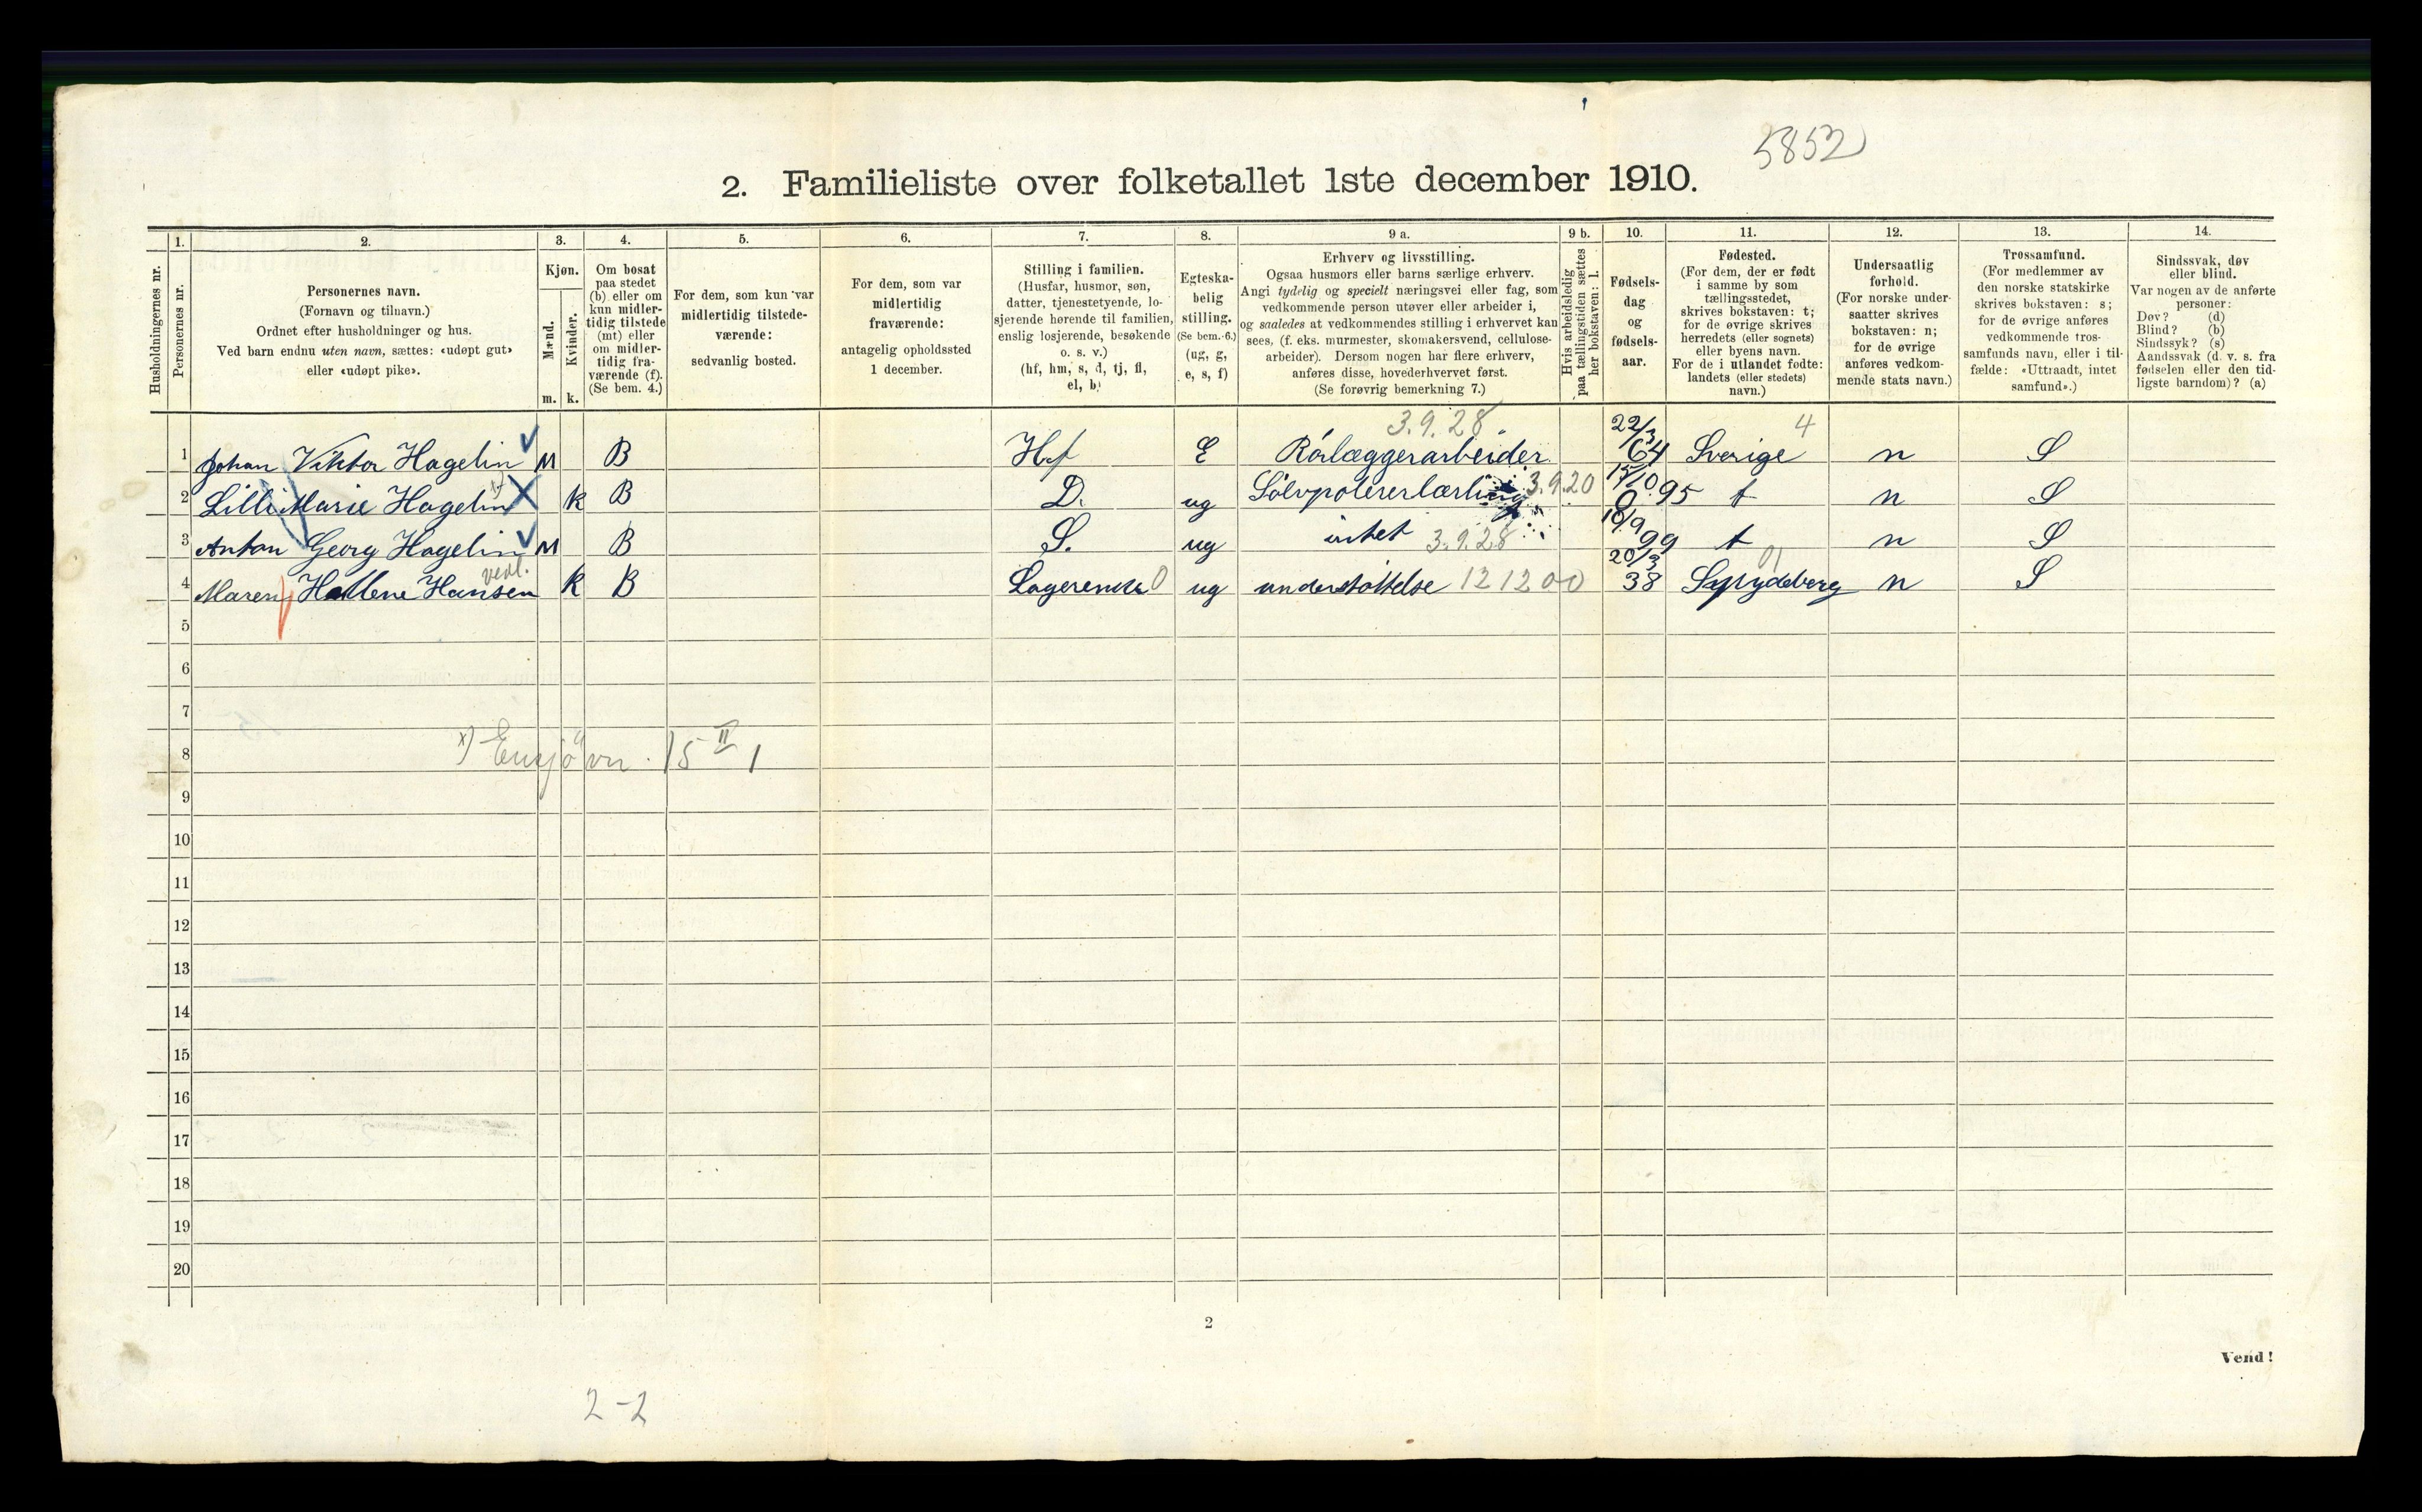 5852
2. Familieliste over folketallet 1ste december 1910.
1. 2. 3. 4. 5. 6. 7. 8. 9 a. 9 b. 10. 11. 12. 13. 14.
Husholdningernes nr.
Personernes nr.
Personernes navn.
(Fornavn og tilnavn.)
Ordnet efter husholdninger og hus.
Ved barn endnu uten navn, sættes: «udøpt gut»
eller «udøpt pike».
Kjøn.
Mænd.
Kvinder.
m. k.
Om bosat
paa stedet
(b) eller om
kun midler-
tidig tilstede
(mt) eller
om midler-
tidig fra-
værende (f).
(Se bem. 4.)
For dem, som kun var
midlertidig tilstede-
værende:
sedvanlig bosted.
For dem, som var
midlertidig
fraværende:
antagelig opholdssted
1 december.
Stilling i familien.
(Husfar, husmor, søn,
datter, tjenestetyende, lo-
sjerende hørende til familien,
enslig losjerende, besøkende
o. s. v.)
(hf, hm, s, d, tj, fl,
el, b)
Egteska-
belig
stilling.
(Se bem. 6.)
(ug, g,
e, s, f)
Erhverv og livsstilling.
Ogsaa husmors eller barns særlige erhverv.
Angi tydelig og specielt næringsvei eller fag, som
vedkommende person utøver eller arbeider i,
og saaledes at vedkommendes stilling i erhvervet kan
sees, (f. eks. murmester, skomakersvend, cellulose-
arbeider). Dersom nogen har flere erhverv,
anføres disse, hovederhvervet først.
(Se forøvrig bemerkning 7.)
Hvis arbeidsledig
paa tællingstiden sættes
her bokstaven: l.
Fødsels-
dag
og
fødsels-
aar.
Fødested.
(For dem, der er født
i samme by som
tællingsstedet,
skrives bokstaven: t;
for de øvrige skrives
herredets (eller sognets)
eller byens navn.
For de i utlandet fødte:
landets (eller stedets)
navn.)
Undersaatlig
forhold.
(For norske under-
saatter skrives
bokstaven: n;
for de øvrige
anføres vedkom-
mende stats navn.)
Trossamfund.
(For medlemmer av
den norske statskirke
skrives bokstaven: s;
for de øvrige anføres
vedkommende tros-
samfunds navn, eller i til-
fælde: «Uttraadt, intet
samfund».)
Sindssvak, døv
eller blind.
Var nogen av de anførte
personer:
Døv? (d)
Blind? (b)
Sindssyk? (s)
Aandssvak (d. v. s. fra
fødselen eller den tid-
ligste barndom)? (a)
3.9.28 22/3 4
1 Johan Viktor Hagelin M B Hf E Rörlæggerarbeider 64 Sverige n S
3.9.20 15/10
2 Lilli Marie Hagelin x) k B D. ug Sölvpolererlærling 95 t n S
10/9
3 Anton Georg Hagelin M B S. ug intet 3.9.28 99 t n S
vedl. 20/3 01
4 Maren Hellene Hansen k B Logerende 0 ug understöttelse 121200 38 Spydeberg n S
5
6
7
8 x) Ensjövn. 15 II 1
9
10
11
12
13
14
15
16
17
18
19
20
2
Vend!
2-2